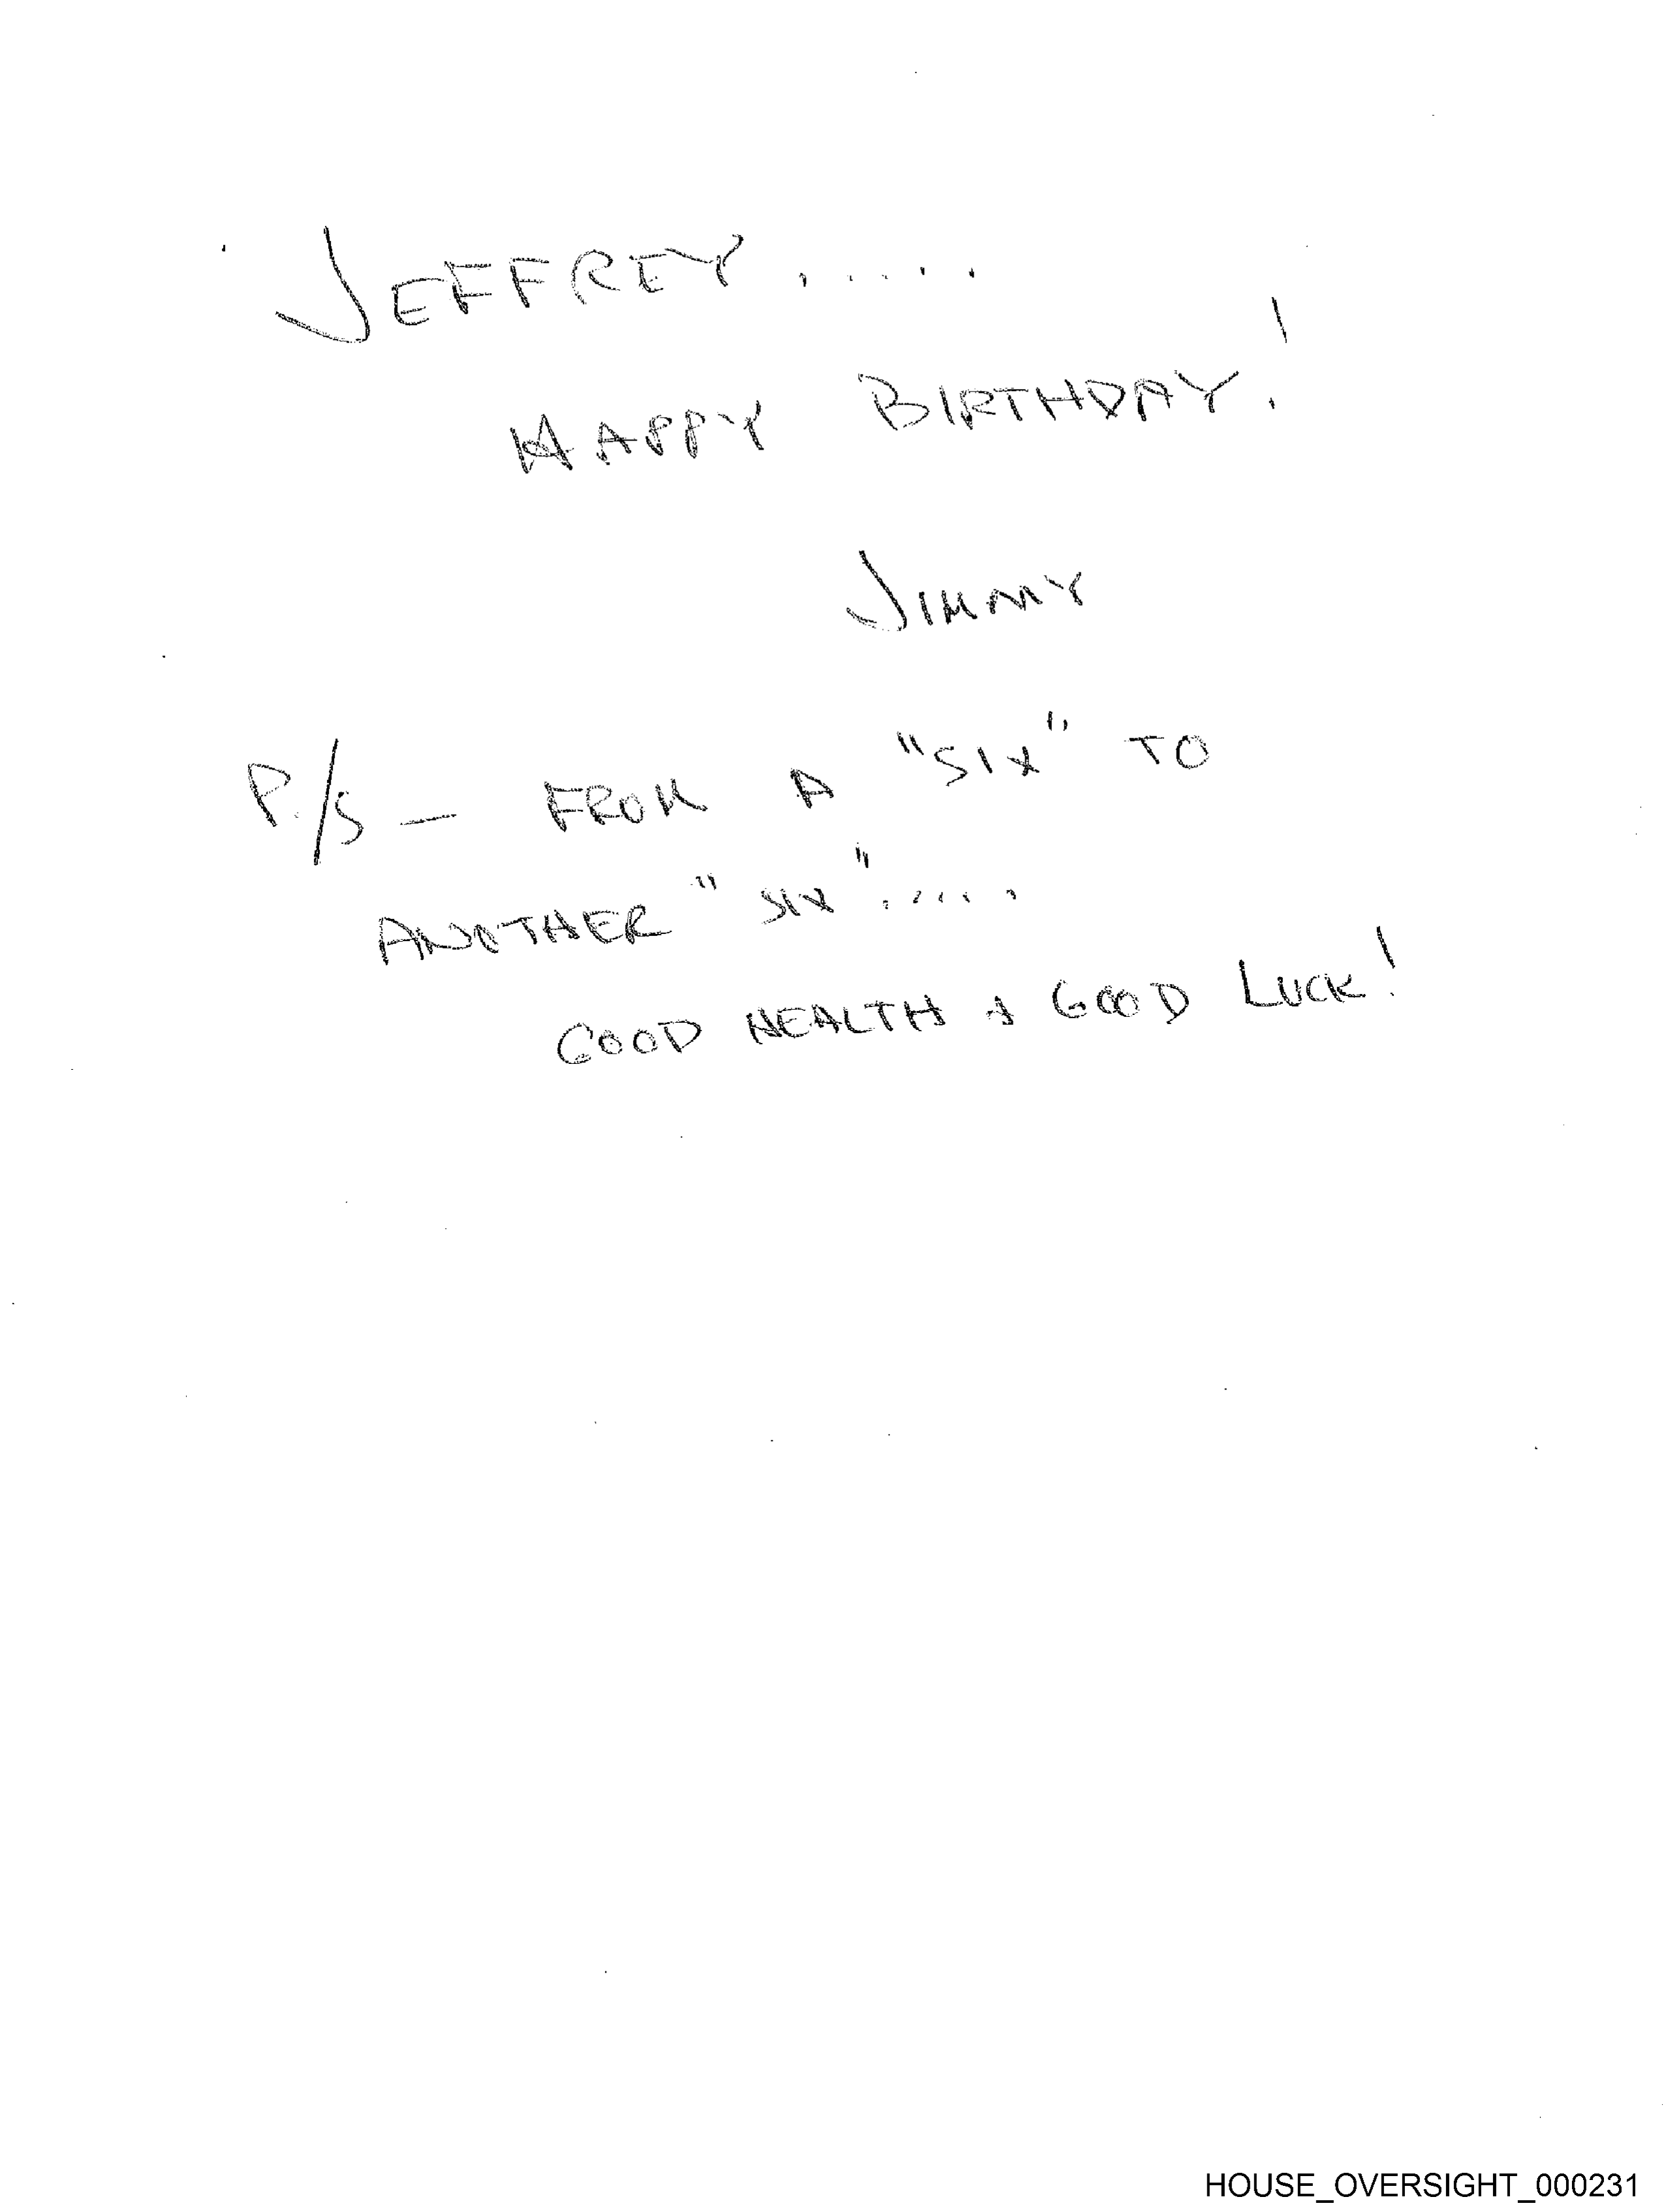 JEFFREY.....
HAPPY BIRTHDAY!
JIMMY
P./S — FROM A "SIX" TO
ANOTHER "SIX".....
GOOD HEALTH & GOOD LUCK!
HOUSE_OVERSIGHT_000231